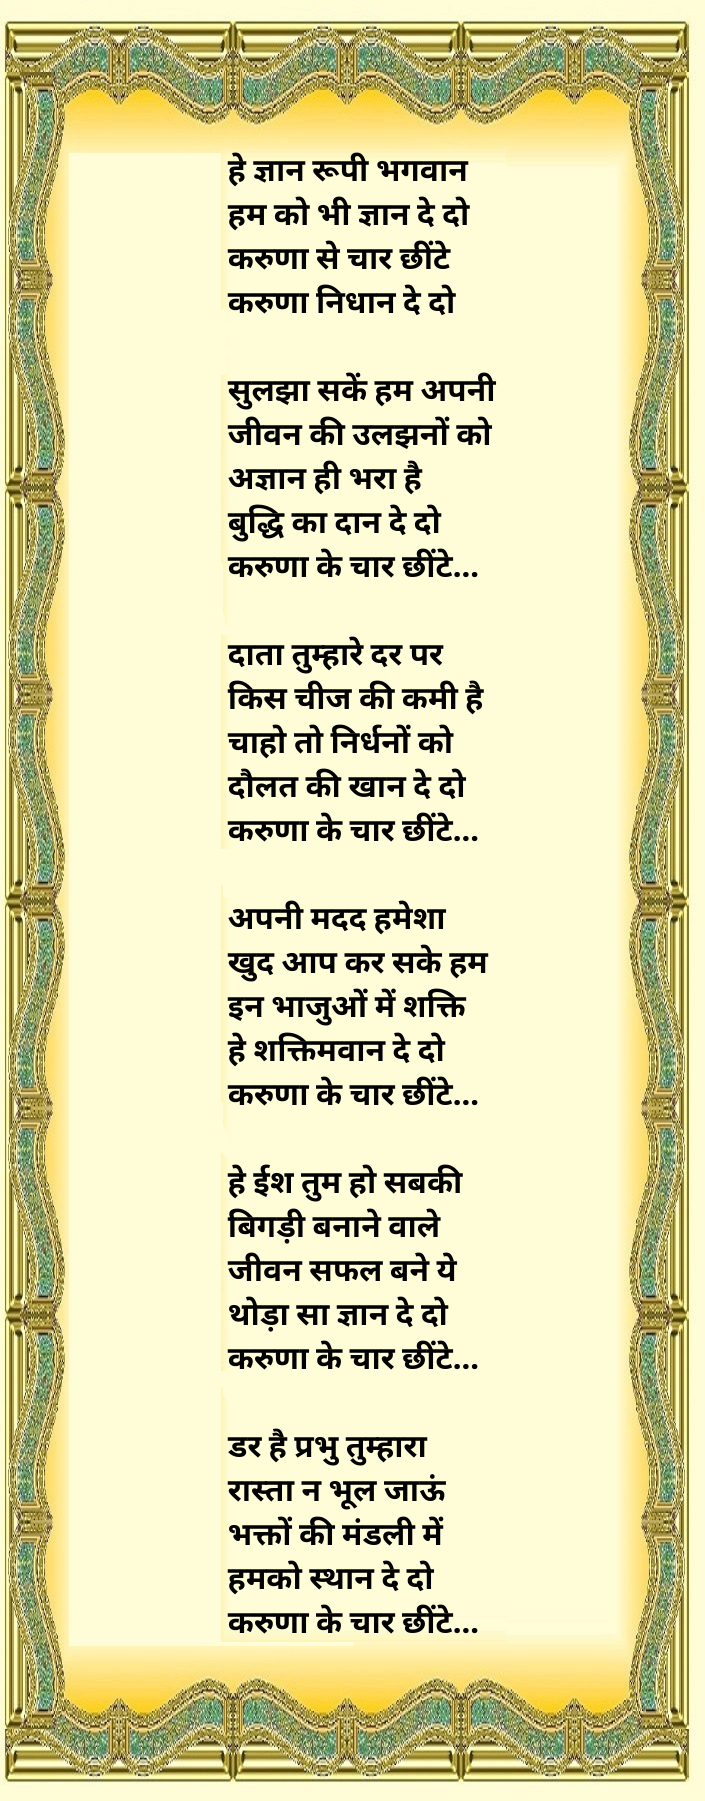 हे ज्ञान रूपी भगवान
हम को भी ज्ञान दे दो
करुणा से चार छींटे
करुणा निधान दे दो
सुलझा सकें हम अपनी
जीवन की उलझनों को
अज्ञान ही भरा है
बुद्धि का दान दे दो
करुणा के चार छींटे...
दाता तुम्हारे दर पर
किस चीज की कमी है
चाहो तो निर्धनों को
दौलत की खान दे दो
करुणा के चार छींटे...
अपनी मदद हमेशा
खुद आप कर सके हम
इन भाजुओं में शक्ति
हे शक्तिमवान दे दो
करुणा के चार छींटे...
हे ईश तुम हो सबकी
बिगड़ी बनाने वाले
जीवन सफल बने ये
थोड़ा सा ज्ञान दे दो
करुणा के चार छींटे...
डर है प्रभु तुम्हारा
रास्ता न भूल जाऊं
भक्तों की मंडली में
हमको स्थान दे दो
करुणा के चार छींटे...